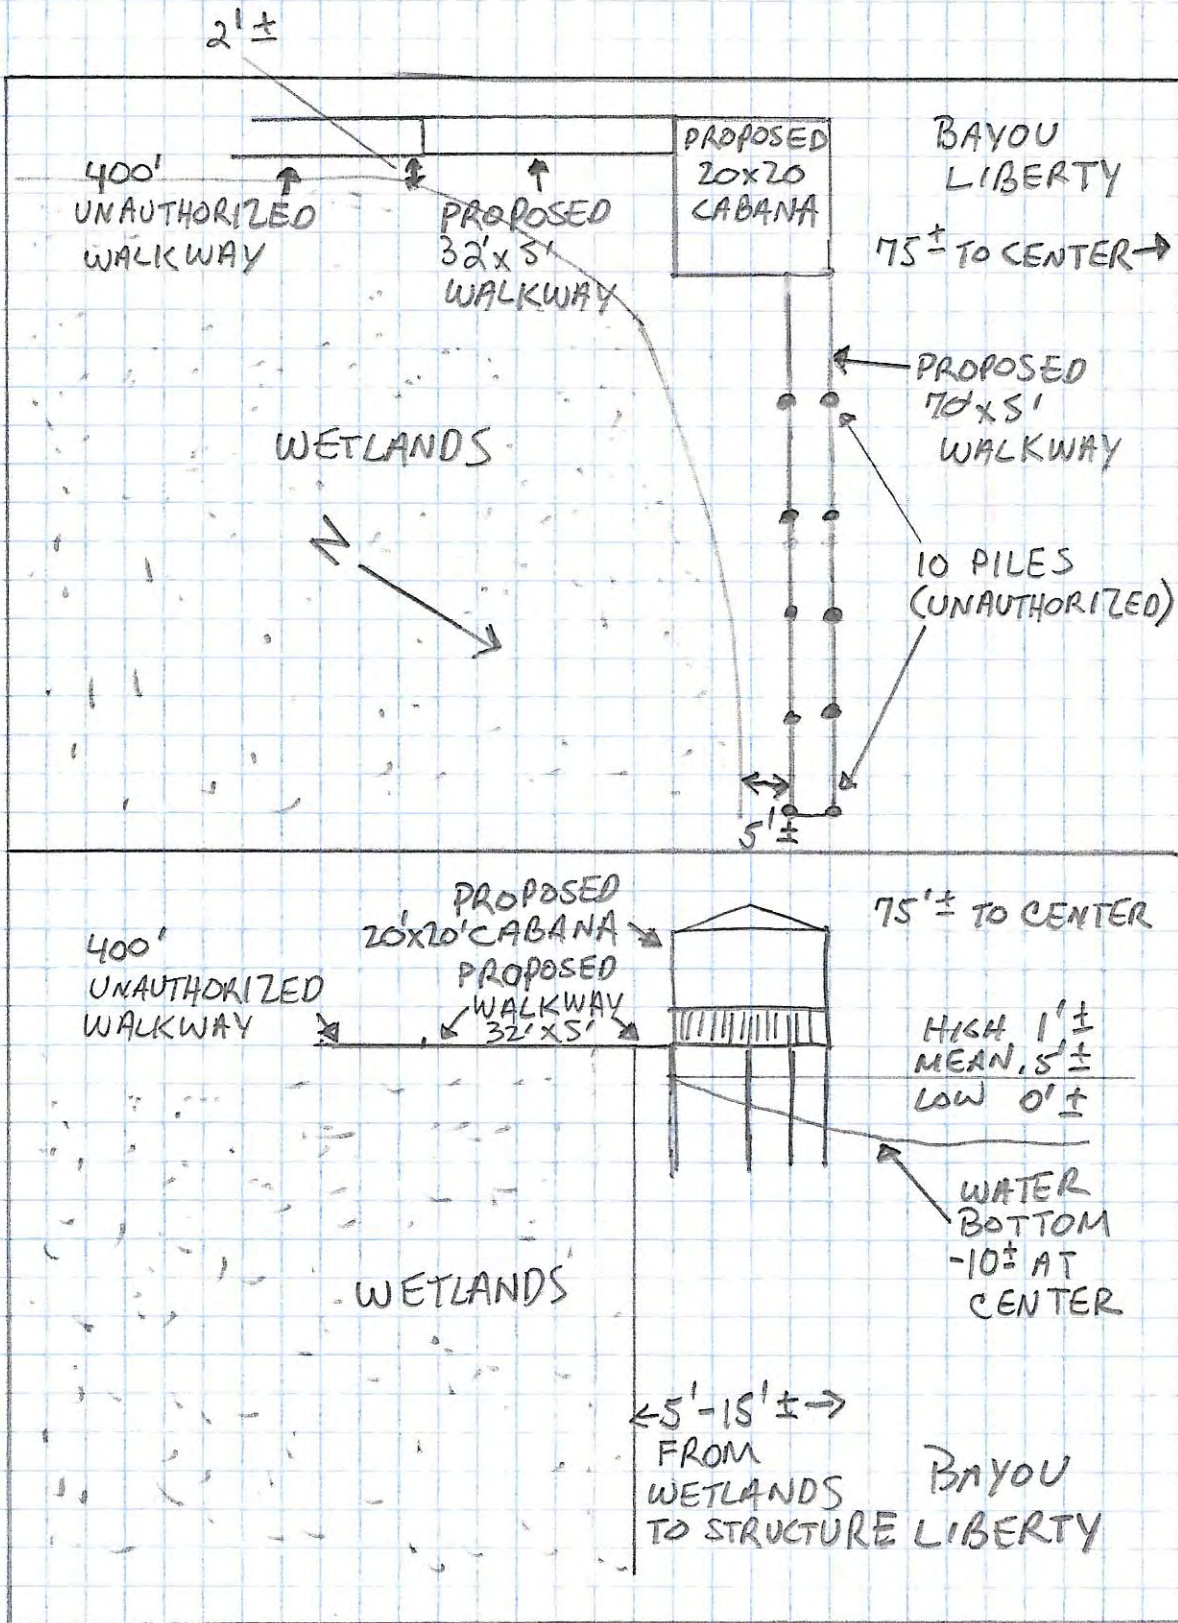 2'±
400'
UNAUTHORIZED
WALKWAY
PROPOSED
32'x5'
WALKWAY
PROPOSED
20x20
CABANA
BAYOU
LIBERTY
75± TO CENTER→
PROPOSED
70'x5'
WALKWAY
WETLANDS
N
10 PILES
(UNAUTHORIZED)
5'±
400'
UNAUTHORIZED
WALKWAY
PROPOSED
20'x20' CABANA
PROPOSED
WALKWAY
32'x5'
75'± TO CENTER
HIGH 1'±
MEAN .5'±
LOW 0'±
WATER
BOTTOM
-10± AT
CENTER
WETLANDS
←5'-15'±→
FROM
WETLANDS
TO STRUCTURE
BAYOU
LIBERTY